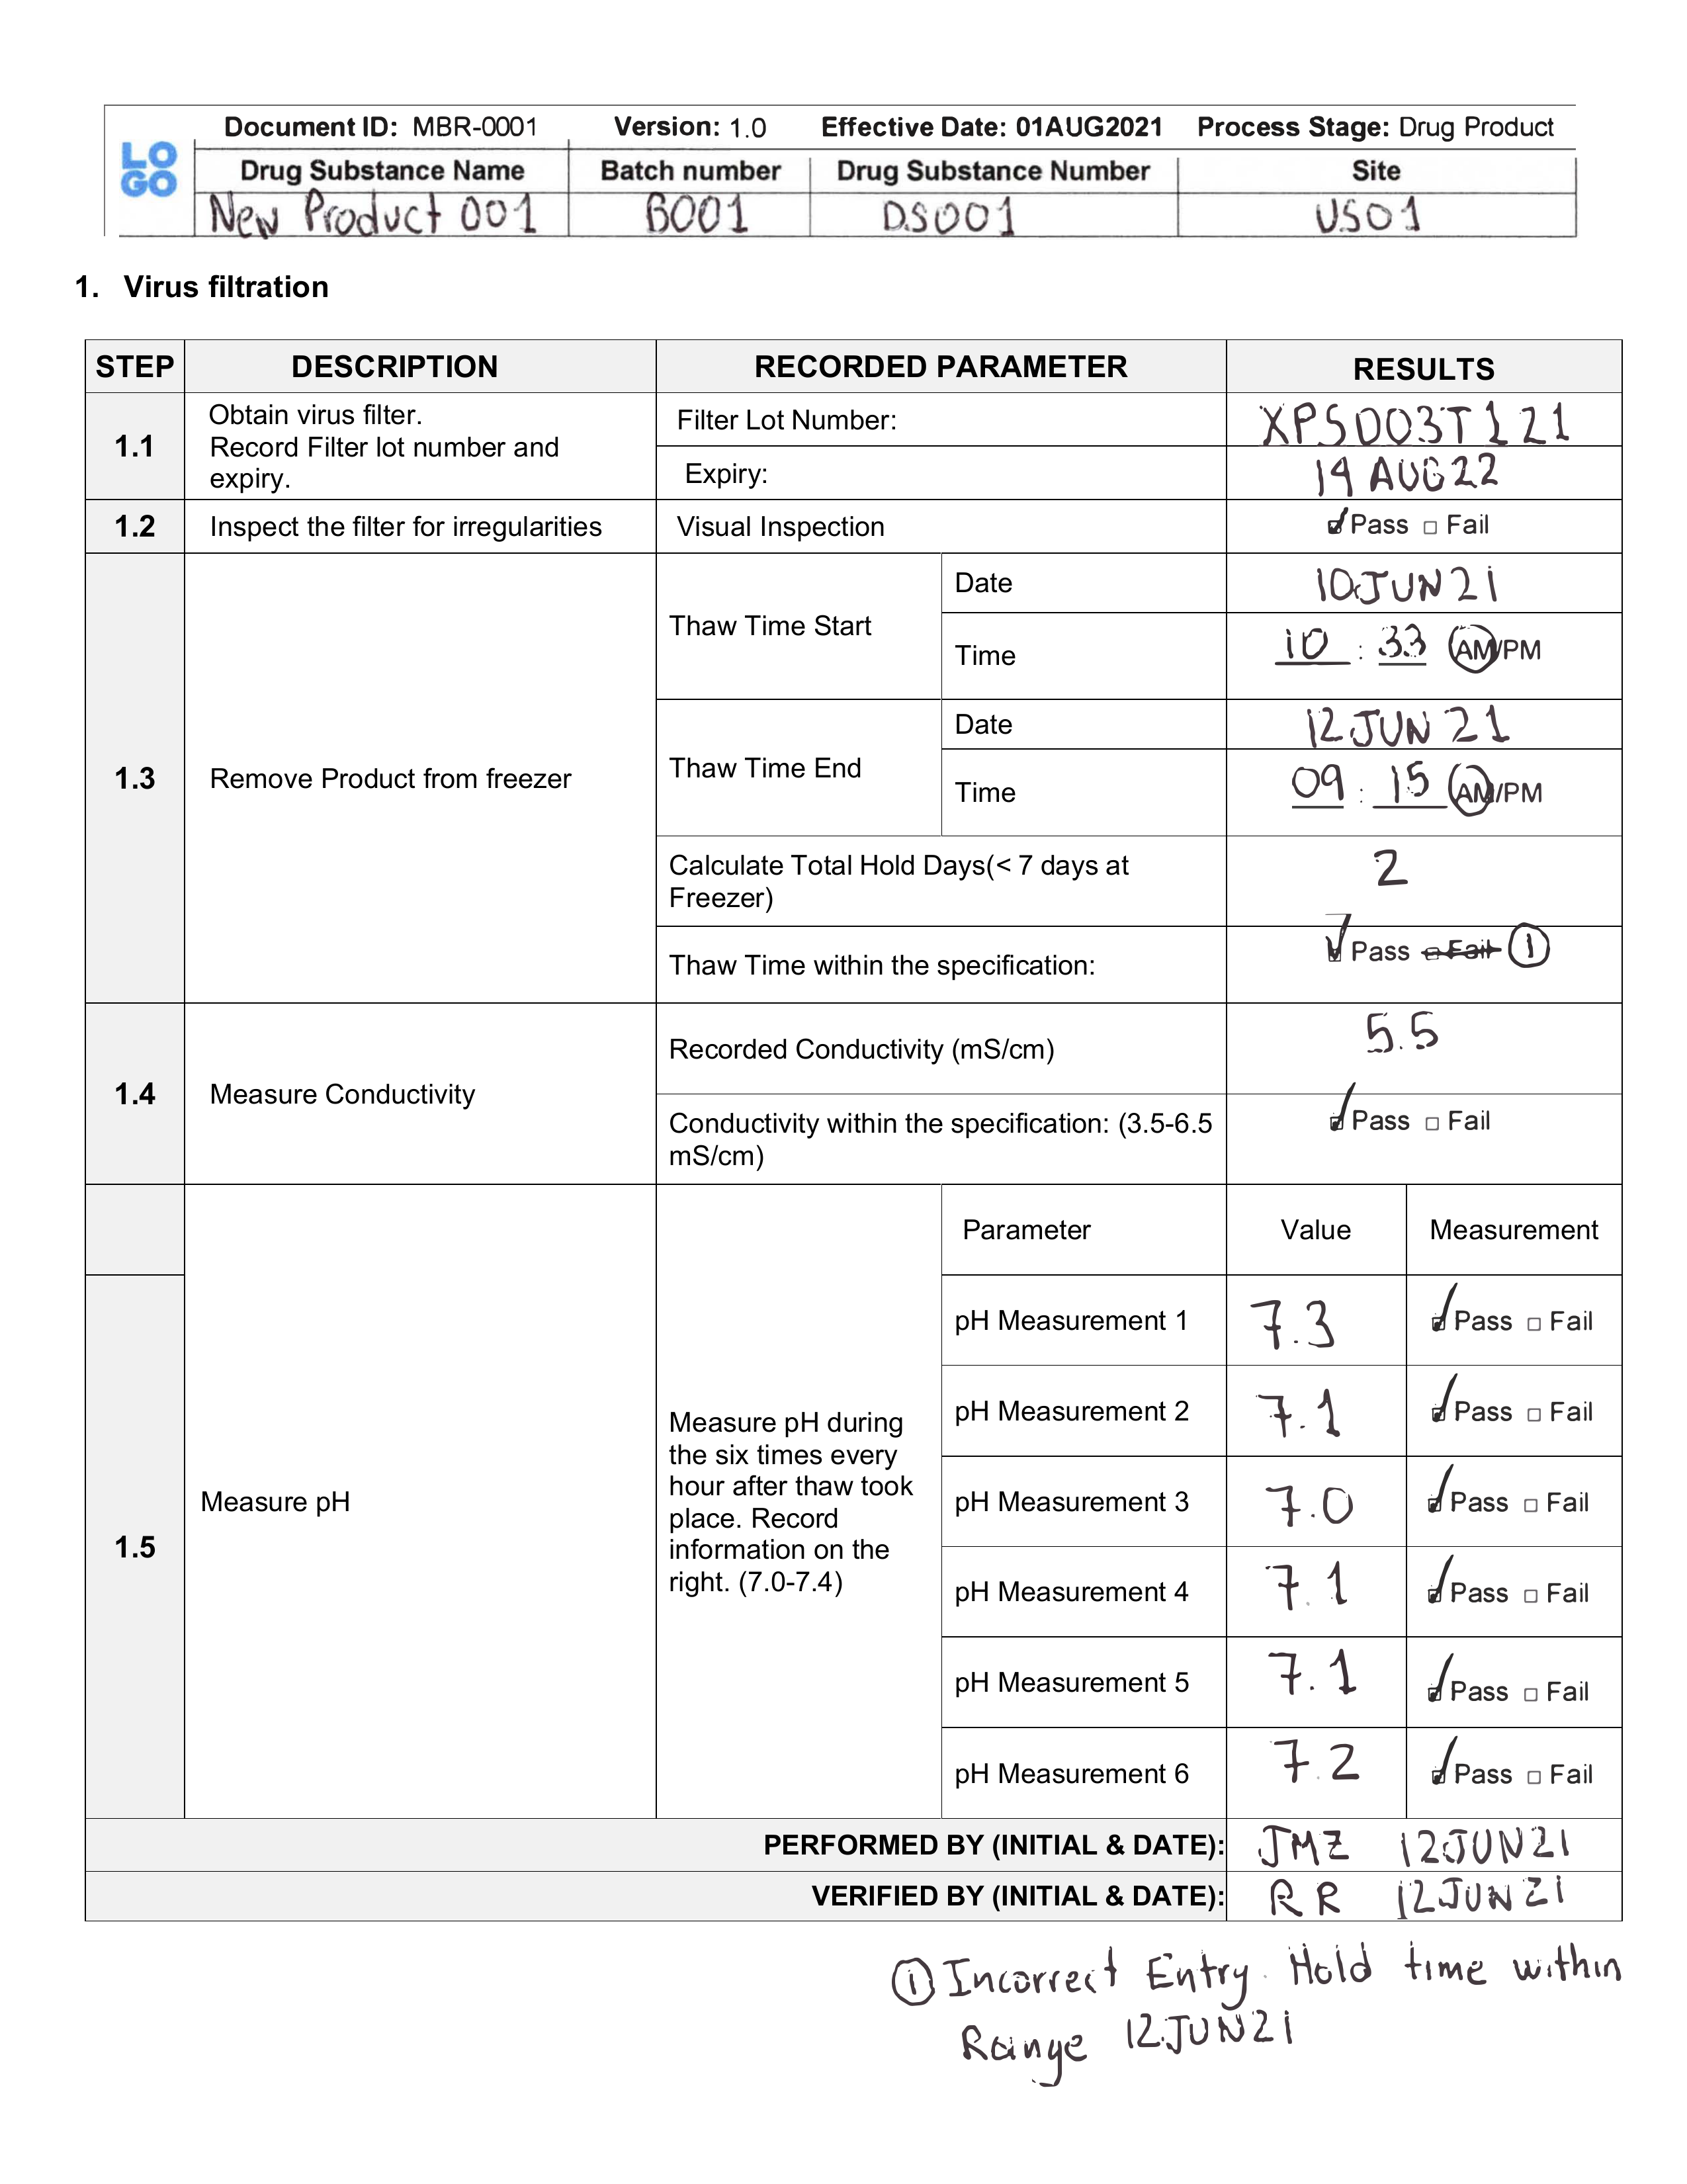 LOGO
Document ID: MBR-0001 Version: 1.0 Effective Date: 01AUG2021 Process Stage: Drug Product
Drug Substance Name Batch number Drug Substance Number Site
New Product 001 B001 DS001 US01
1. Virus filtration
STEP DESCRIPTION RECORDED PARAMETER RESULTS
1.1
Obtain virus filter.
Record Filter lot number and
expiry.
Filter Lot Number: XPSD03T121
Expiry: 19 AUG22
1.2 Inspect the filter for irregularities Visual Inspection Pass Fail
1.3 Remove Product from freezer
Thaw Time Start
Date 10JUN21
Time 10 : 33 AM/PM
Thaw Time End
Date 12JUN 21
Time 09 : 15 AM/PM
Calculate Total Hold Days(< 7 days at
Freezer)
2
Thaw Time within the specification: Pass Fail 1
1.4 Measure Conductivity
Recorded Conductivity (mS/cm) 5.5
Conductivity within the specification: (3.5-6.5
mS/cm)
Pass Fail
Parameter Value Measurement
1.5 Measure pH
Measure pH during
the six times every
hour after thaw took
place. Record
information on the
right. (7.0-7.4)
pH Measurement 1 7.3 Pass Fail
pH Measurement 2 7.1 Pass Fail
pH Measurement 3 7.0 Pass Fail
pH Measurement 4 7.1 Pass Fail
pH Measurement 5 7.1 Pass Fail
pH Measurement 6 7.2 Pass Fail
PERFORMED BY (INITIAL & DATE): JMZ 12JUN21
VERIFIED BY (INITIAL & DATE): RR 12JUN21
1 Incorrect Entry. Hold time within
Range 12JUN21